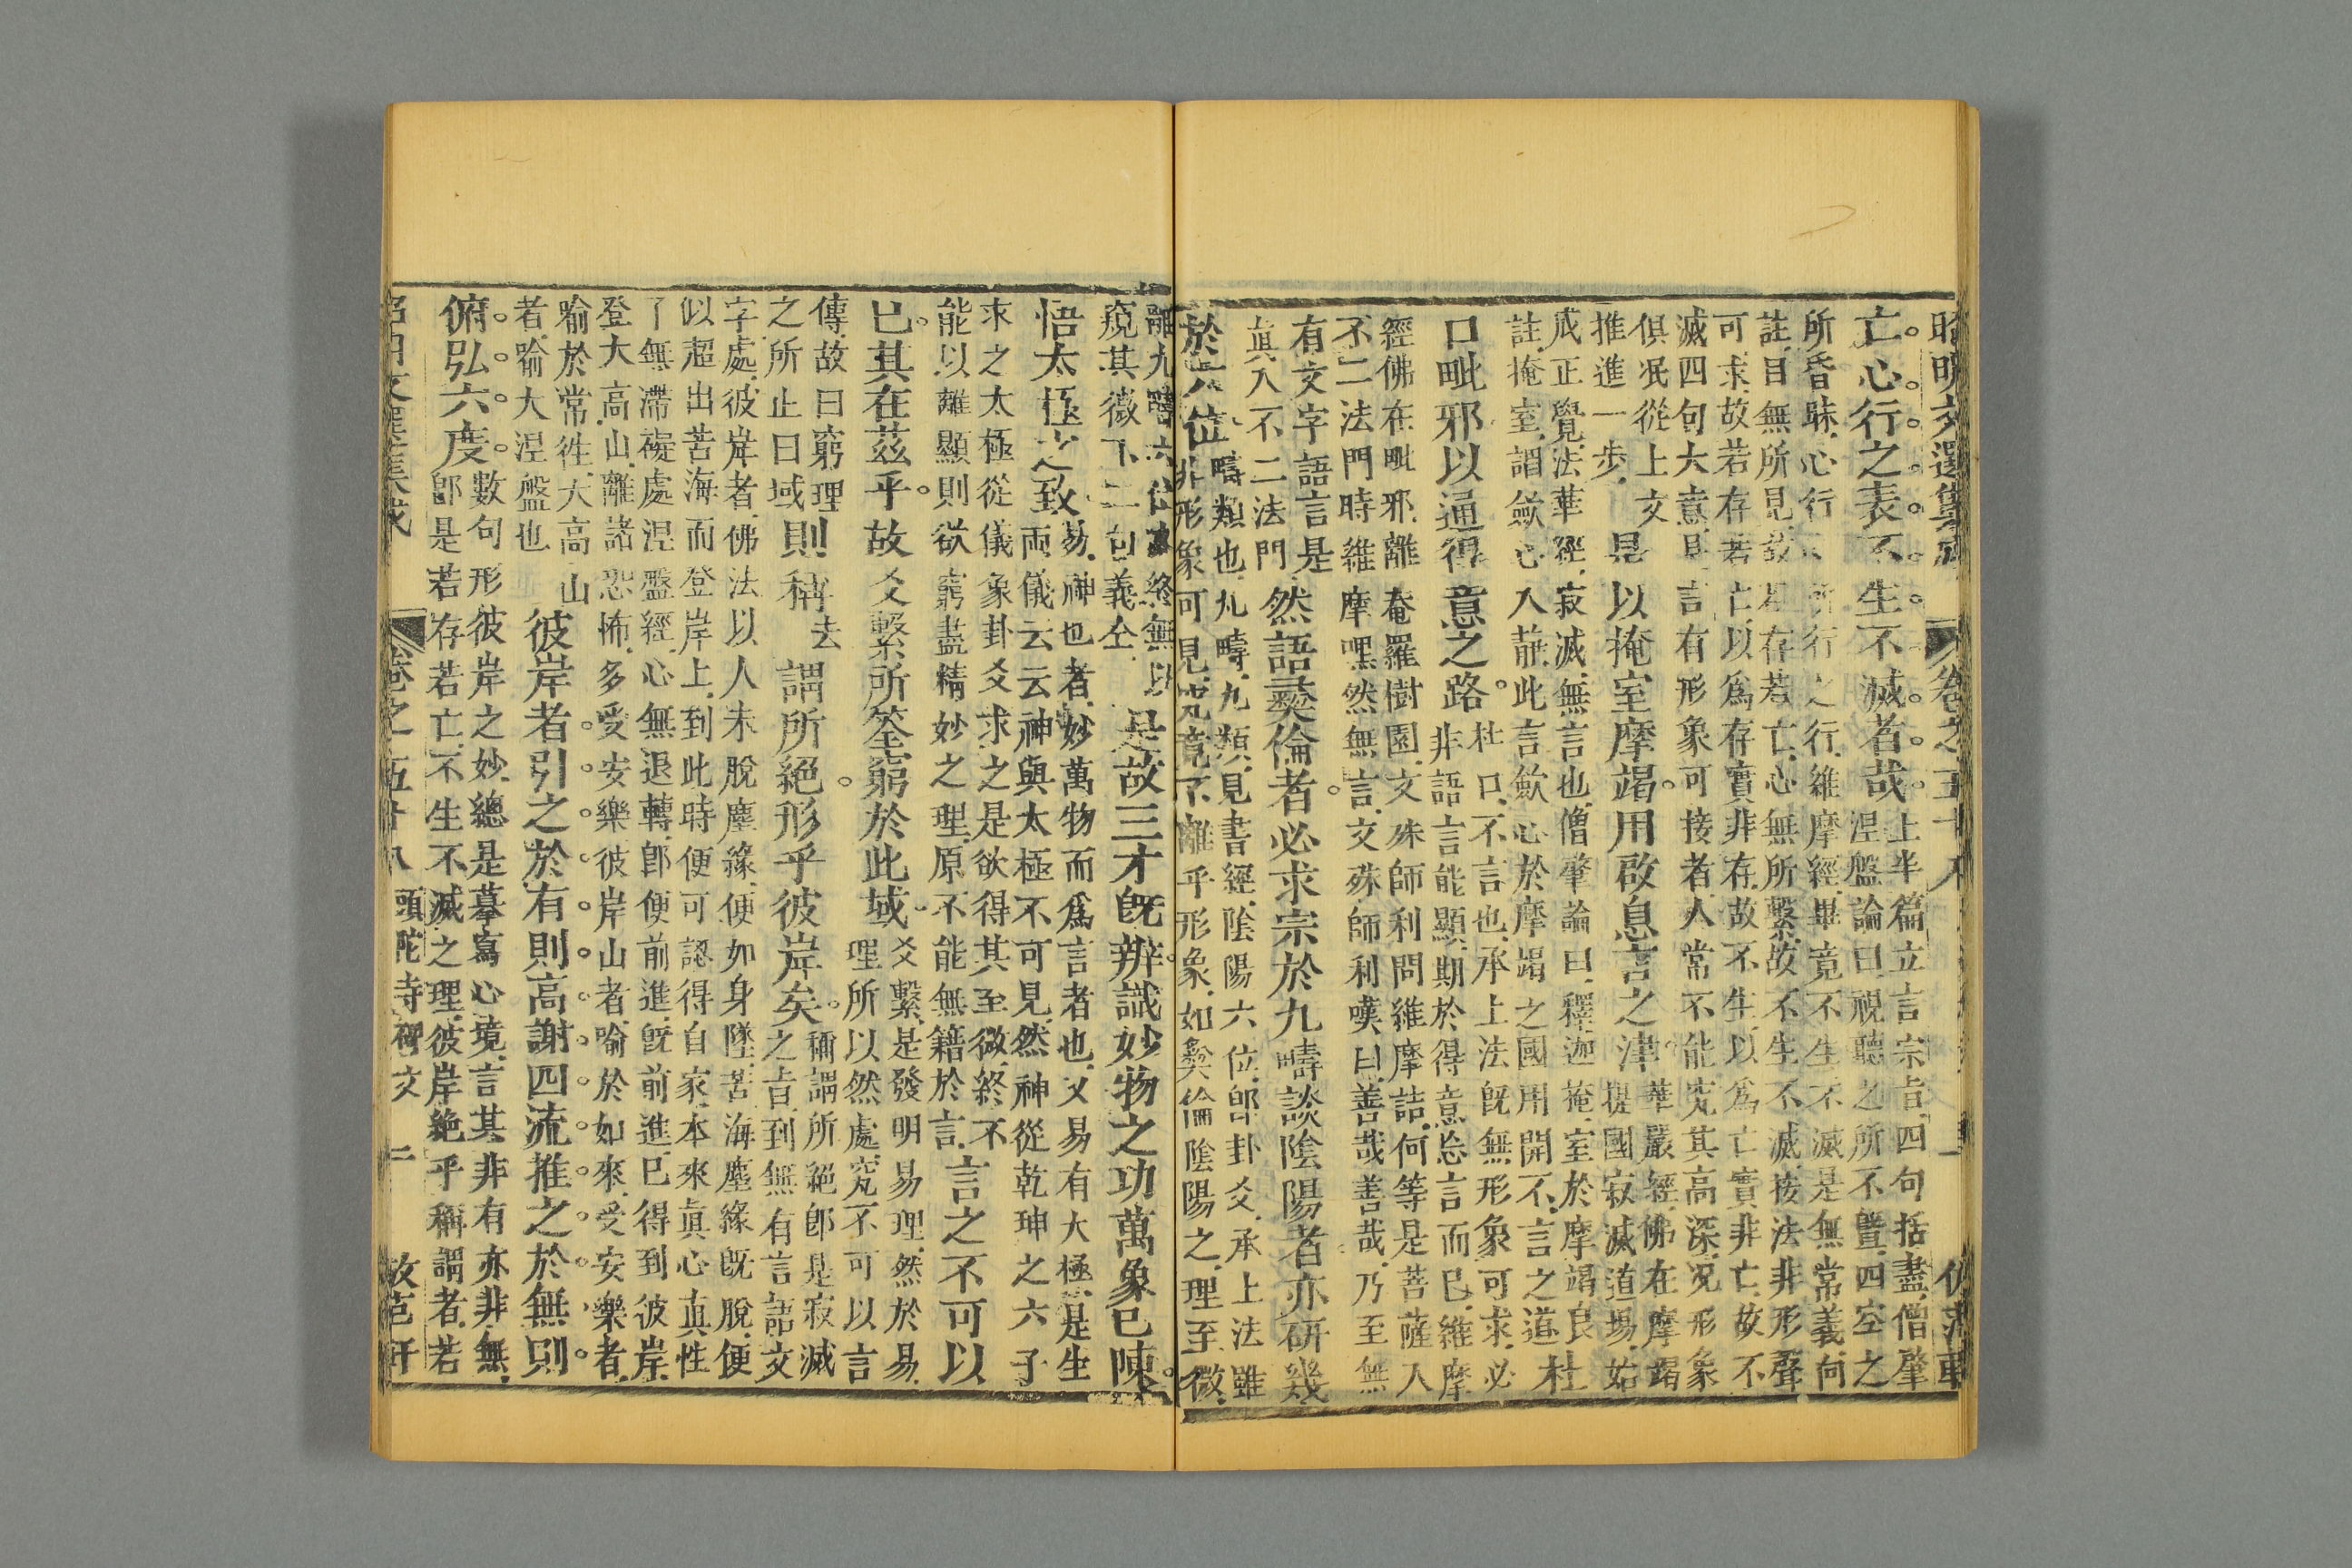 亡心行之表不生不滅者哉上半篇立言宗旨四句括盡僧肇
涅盤論曰視聽之所不曁四空之
所昏昧心行 所行之行維摩經畢竟不生不滅是無常義向
註目無所見故若存若亡心無所繫故不生不滅接法非形聲
可求故若存若亡以爲存存實非存故不生以爲亡亡實非亡故不
滅四句大意見言有形象可接者人常不能究其高深况形象
俱泯從上文
推進一步 是以掩室摩竭用啟息言之津華嚴經佛在摩竭
提國寂滅道場始
成正覺法華經寂滅無言也僧肇論曰釋迦掩室於摩竭良
註掩室謂斂心入靜此言歛心於摩竭之國用開不言之道杜
口毗邪以通得意之路杜口不言也承上法旣無形象可求必
非語言能顯期於得意忘言而已維摩
經佛在毗邪離菴羅樹園文殊師利問維摩詰何等是菩薩入
不二法門時維摩嘿然無言文殊師利嘆曰善哉善哉乃至無
有文字語言是
眞入不二法門 然語彝倫者必求宗於九疇談陰陽者亦研幾
於六位疇類也九疇九類見書經陰陽六位卽卦爻承上法雖
非形象可見究竟不離乎形象如彝倫陰陽之理至微
離九疇六位 終無以
窺其微下二句義仝 是故三才旣辨識妙物之功萬象已陳
悟太極之致易神也者妙萬物而爲言者也又易有大極是生
兩儀云云神與太極不可見然神從乾坤之六子
求之太極從儀象卦爻求之是欲得其至微終不
能以離顯則欲窮盡精妙之理原不能無籍於言 言之不可以
已其在茲乎故爻繫所筌窮於此域爻繫是發明易理然於易
理所以然處究不可以言
傳故曰窮理
之所止曰域 則稱去謂所絕形乎彼岸矣稱謂所絕卽是寂滅
之旨到無有言語文
字處彼岸者佛法以人未脫塵緣便如身墜苦海塵緣旣脫便
似超出苦海而登岸上到此時便可認得自家本來眞心眞性
了無滯礙處涅盤經心無退轉卽便前進旣前進已得到彼岸
登大高山離諸恐怖多受安樂彼岸山者喻於如來受安樂者
喻於常住大高山
者喻大涅盤也 彼岸者引之於有則高謝四流推之於無則
俯弘六度數句形彼岸之妙總是摹寫心境言其非有亦非無
卽是若存若亡不生不滅之理彼岸絕乎稱謂者若
卷之五十八 頭陀寺碑文 二